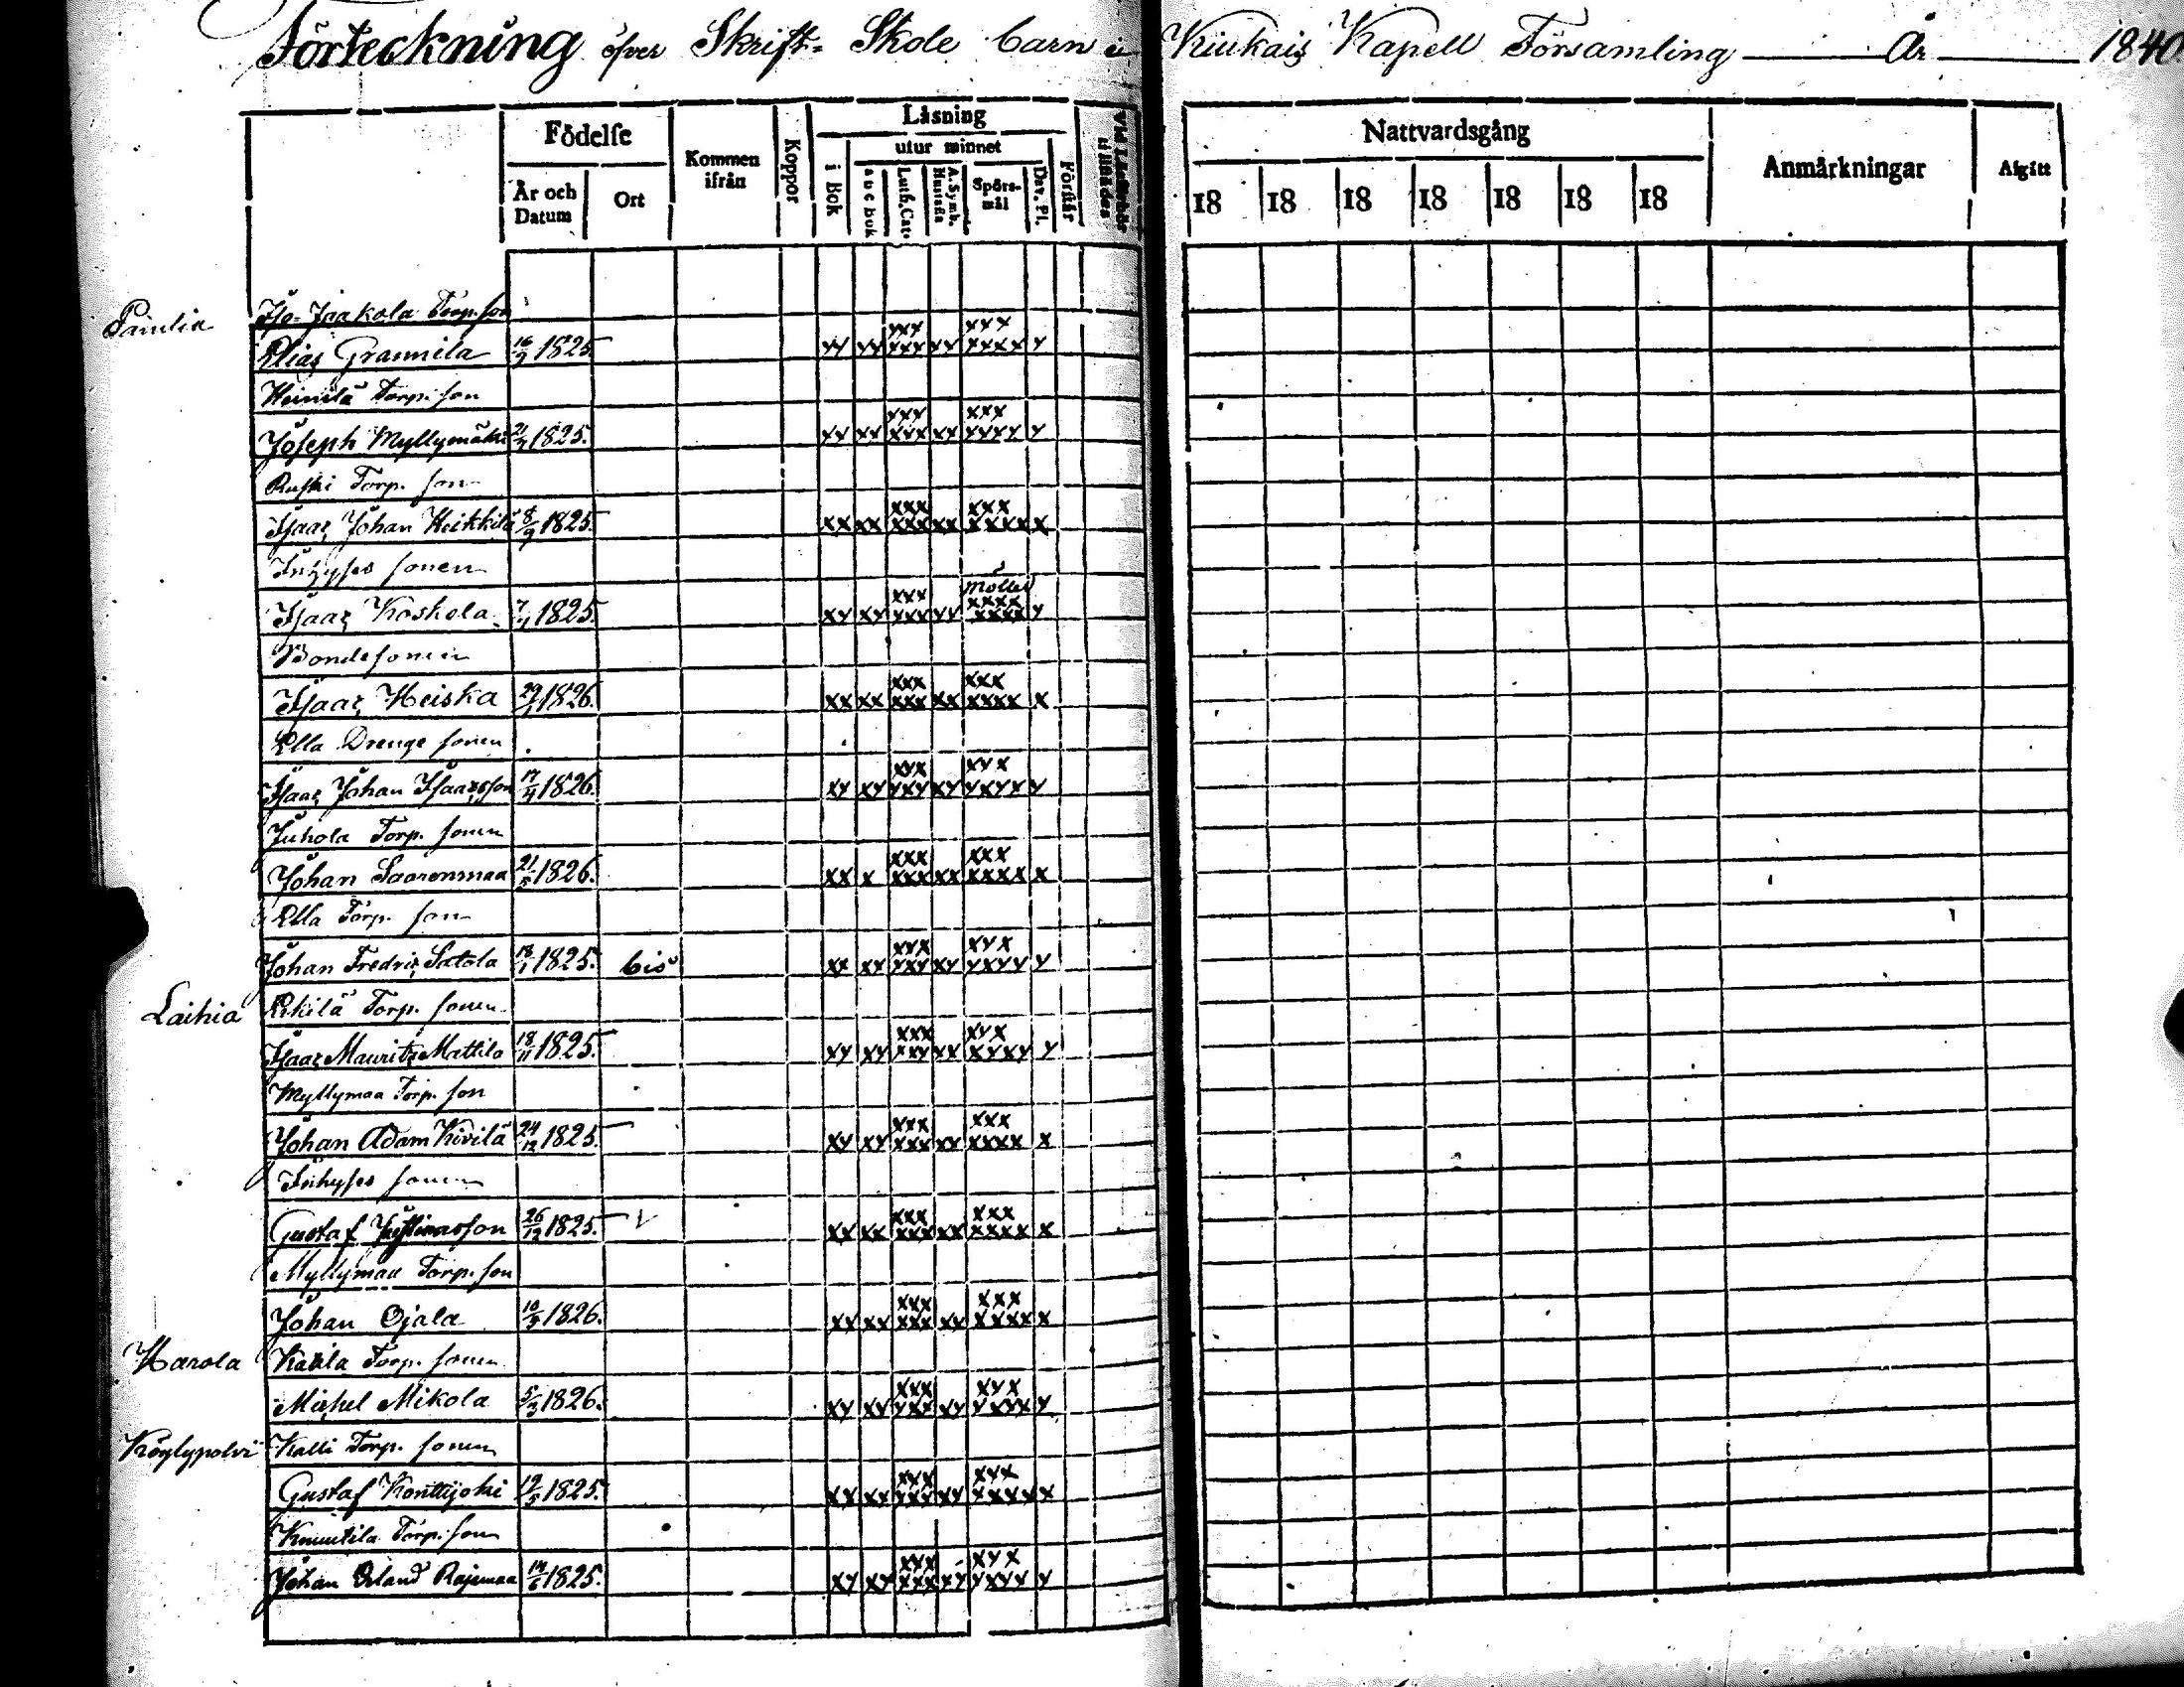 Förteckning öfver Skrift- Skole barn i Kiukais Kapell Församling År 1840.
Födelse
Kommen ifrån
Koppor
Läsning
Nattvardsgång
Anmärkningar
Afgått
År och Datum
Ort
i Bok
utur minnet
a b c bok
Luth. Cat.
A. Symb. Hustafla
Spörs-mål
Dav. Ps.
Förstår
18 18 18 18 18 18 18
Panelia Iso-Jaakola Torp. son
Elias Grannila 16/9 1825. xx xx xxx xxx xx xxx xxxx x
Heinilä Torp. son
Joseph Myllymäki 1825. xx xx xxx xxx xx xxx xxxx x
Ruski Torp. son
Isaac Johan Heikkilä 8/9 1825. xx xx xxx xxx xx xxx xxxxx x
Inhyses sonen
Isaac Koskela 1825. xx xx xxx xxx xx xxxx xxxx x
Bondesonen
Isaac Heiska 29/1 1826. xx xx xxx xxx xx xxx xxxx x
Ella Drenge sonen
Isaac Johan Isaacsson 17/4 1826. xx xx xxx xxx xx xxx xxxxx x
Juhola Torp. sonen
Johan Saarenmaa 21/5 1826. xx x xxx xxx xx xxx xxxxx x
Ella Torp. son
Johan Fredric Satola 18/1 1825. bis xx xx xxx xxx xx xxx xxxx x
Laihia Torp. sonen
Isaac Mauritz Mattila 18/11 1825. xx xx xxx xxx xx xxx xxxx x
Myllymaa Torp. son
Johan Adam Kivilä 24/12 1825. xx xx xxx xxx xx xxx xxxx x
Inhyses sonen
Gustaf 26/12 1825. xx xx xxx xxx xx xxx xxxx x
Myllymaa Torp. son
Johan Ojala 1826. xx xx xxx xxx xx xxx xxxxx x
Harola Torp. sonen
Michel Mikola 5/3 1826. xx xx xxx xxx xx xxx xxxx x
Köylypolvi Kalli Torp. sonen
Gustaf Konttijoki 19/5 1825. xx xx xxx xxx xx xxx xxxxx x
Knuutila Torp. son
Johan Erland Rajamaa 14/6 1825. xx xx xxx xxx xx xxx xxxx x